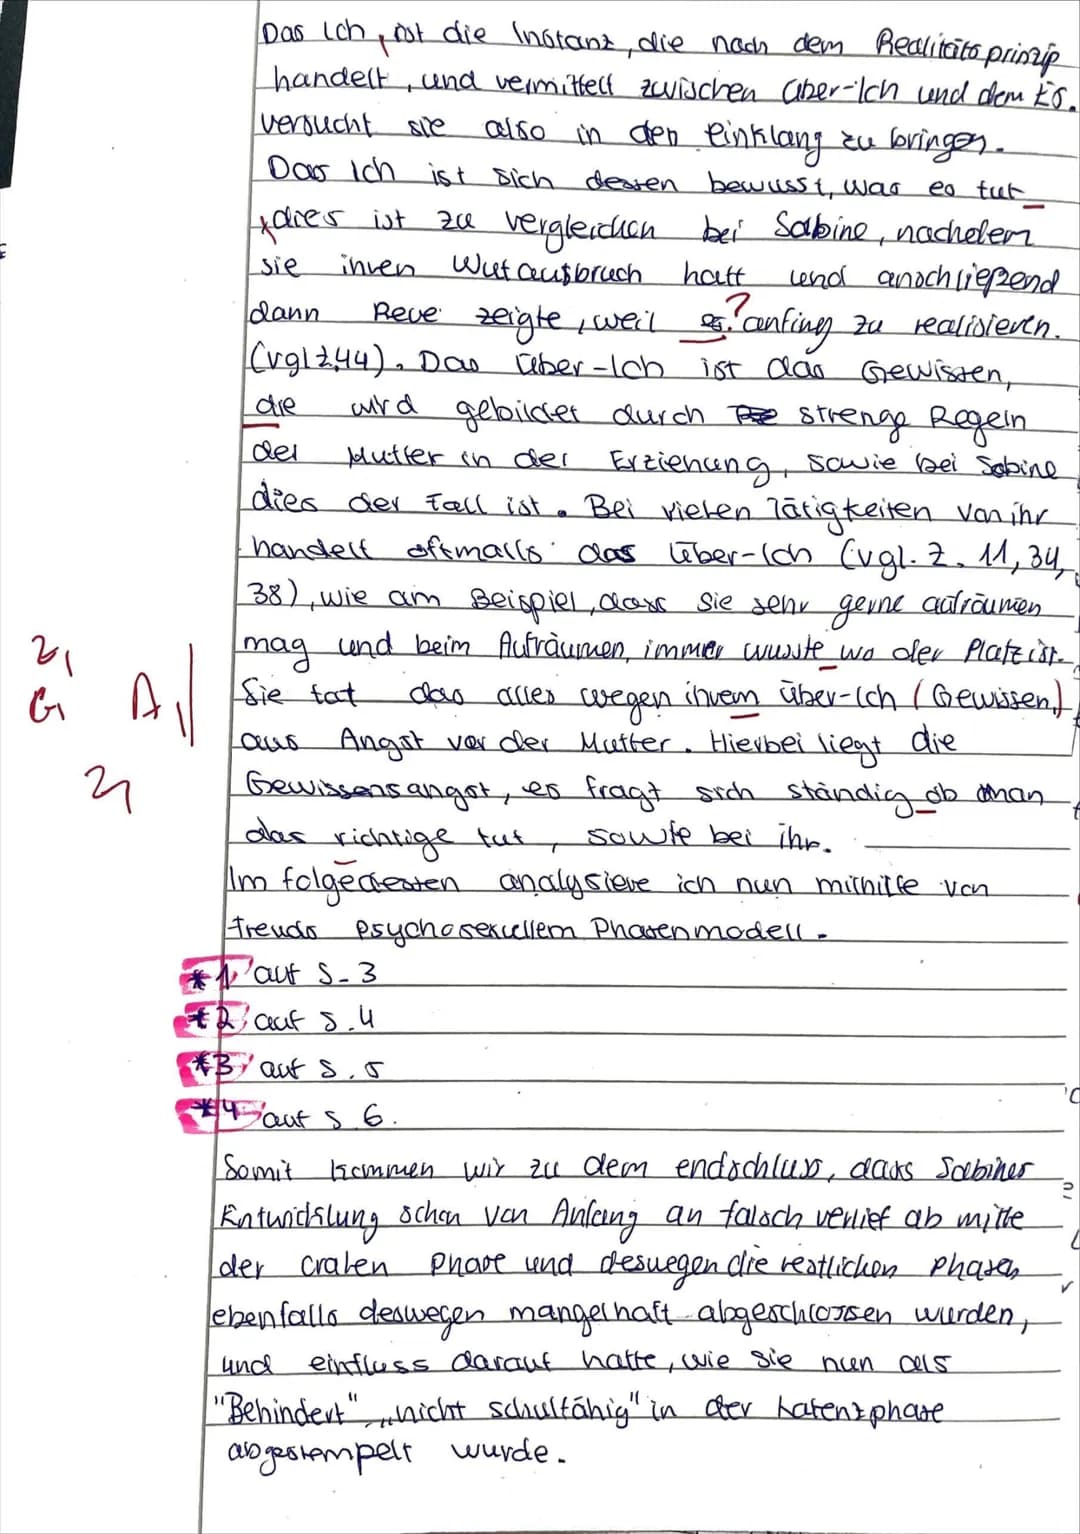 Das Ich, ist die Instanz, die nach dem Realitätsprinzip
handelt, und vermittelt zwischen Über-Ich und dem Es.
versucht sie also in den einklang zu bringen.
Das Ich ist sich dessen bewusst, was es tut
dies ist zu vergleichen bei Sabine, nachdem
sie ihren Wutausbruch hatt und anschließend
dann Reue zeigte, weil es ? anfing zu realisieren.
(vgl Z.44). Das Über-Ich ist das Gewissen,
die wird gebildet durch strenge Regeln
der Mutter in der Erziehung, sowie bei Sabine
dies der Fall ist. Bei vielen Tätigkeiten von ihr
handelt oftmalls das Über-Ich (vgl. Z. 11, 34,
38), wie am Beispiel, dass sie sehr gerne aufräumen
mag und beim Aufräumen, immer wusste wo der Platz ist.
Sie tat das alles wegen ihrem über-Ich (Gewissen,)
aus Angst vor der Mutter. Hierbei liegt die
Gewissensangst, es fragt sich ständig ob man
das richtige tut, sowie bei ihr.
Im folgedesten analysiere ich nun mithilfe von
Freuds psychosexuellem Phasenmodell.
*1 auf S. 3
*2 auf S. 4
*3 auf S. 5
*4 auf S 6.
Somit kommen wir zu dem endschluss, dass Sabines
Entwicklung schon von Anfang an falsch verlief ab mitte
der oralen Phase und deswegen die restlichen Phasen
ebenfalls deswegen mangelhaft abgeschlossen wurden,
und einfluss darauf hatte, wie sie nun als
"Behindert" „nicht schulfähig" in der Latenzphase
abgestempelt wurde.
G A